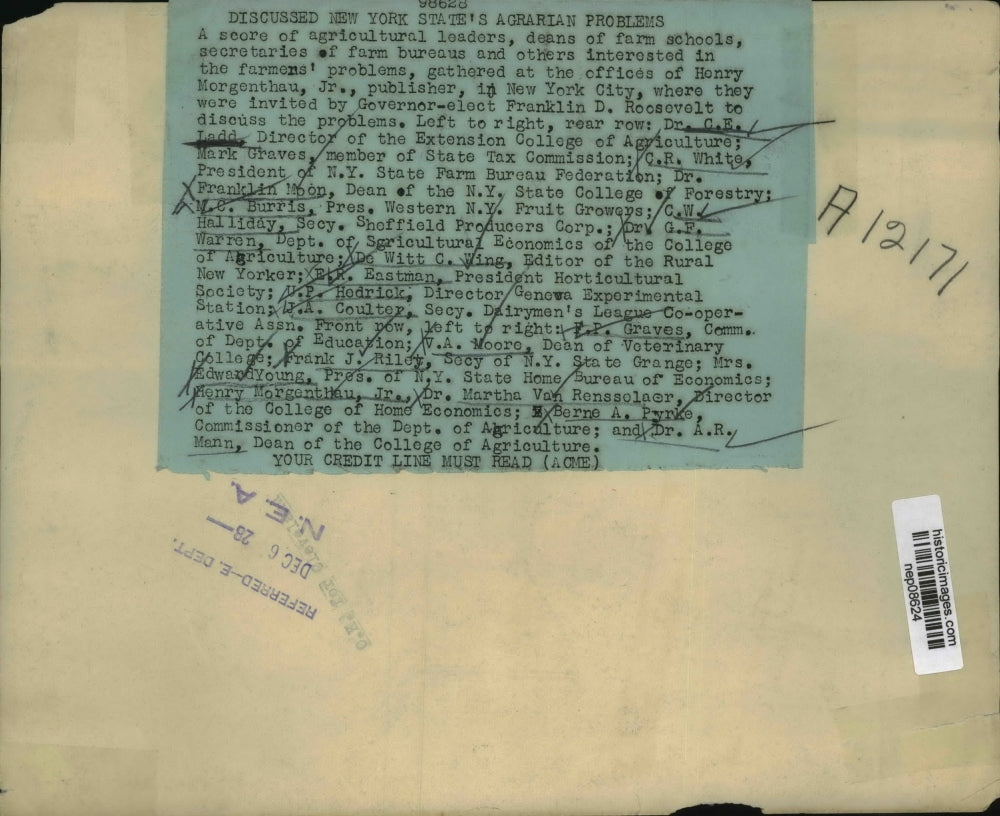 98628
DISCUSSED NEW YORK STATE'S AGRARIAN PROBLEMS
A score of agricultural leaders, deans of farm schools,
secretaries of farm bureaus and others interested in
the farmens' problems, gathered at the offices of Henry
Morgenthau, Jr., publisher, in New York City, where they
were invited by Governor-elect Franklin D. Roosevelt to
discuss the problems. Left to right, rear row: Dr. C.E.
Ladd, Director of the Extension College of Agriculture;
Mark Graves, member of State Tax Commission; C.R. White,
President of N.Y. State Farm Bureau Federation; Dr.
Franklin Moon, Dean of the N.Y. State College of Forestry;
M.C. Burris, Pres. Western N.Y. Fruit Growers; C.W.
Halliday, Secy. Sheffield Producers Corp.; Dr. G.F.
Warren, Dept. of Sgricultural Economics of the College
of Agriculture; De Witt C. Wing, Editor of the Rural
New Yorker; E.R. Eastman, President Horticultural
Society; U.P. Hedrick, Director Geneva Experimental
Station; J.A. Coulter, Secy. Dairymen's League Co-oper-
ative Assn. Front row, left to right: F.P. Graves, Comm.
of Dept. of Education; V.A. Moore, Dean of Veterinary
College; Frank J. Riley, Secy of N.Y. State Grange; Mrs.
EdwardYoung, Pres. of N.Y. State Home Bureau of Economics;
Henry Morgenthau, Jr., Dr. Martha Van Renssolaer, Director
of the College of Home Economics; Berne A. Pyrke,
Commissioner of the Dept. of Agriculture; and Dr. A.R.
Mann, Dean of the College of Agriculture.
YOUR CREDIT LINE MUST READ (ACME)
A12171
N.E.A.
DEC 6 28
REFERRED-E. DEPT.
historicimages.com
nep08624